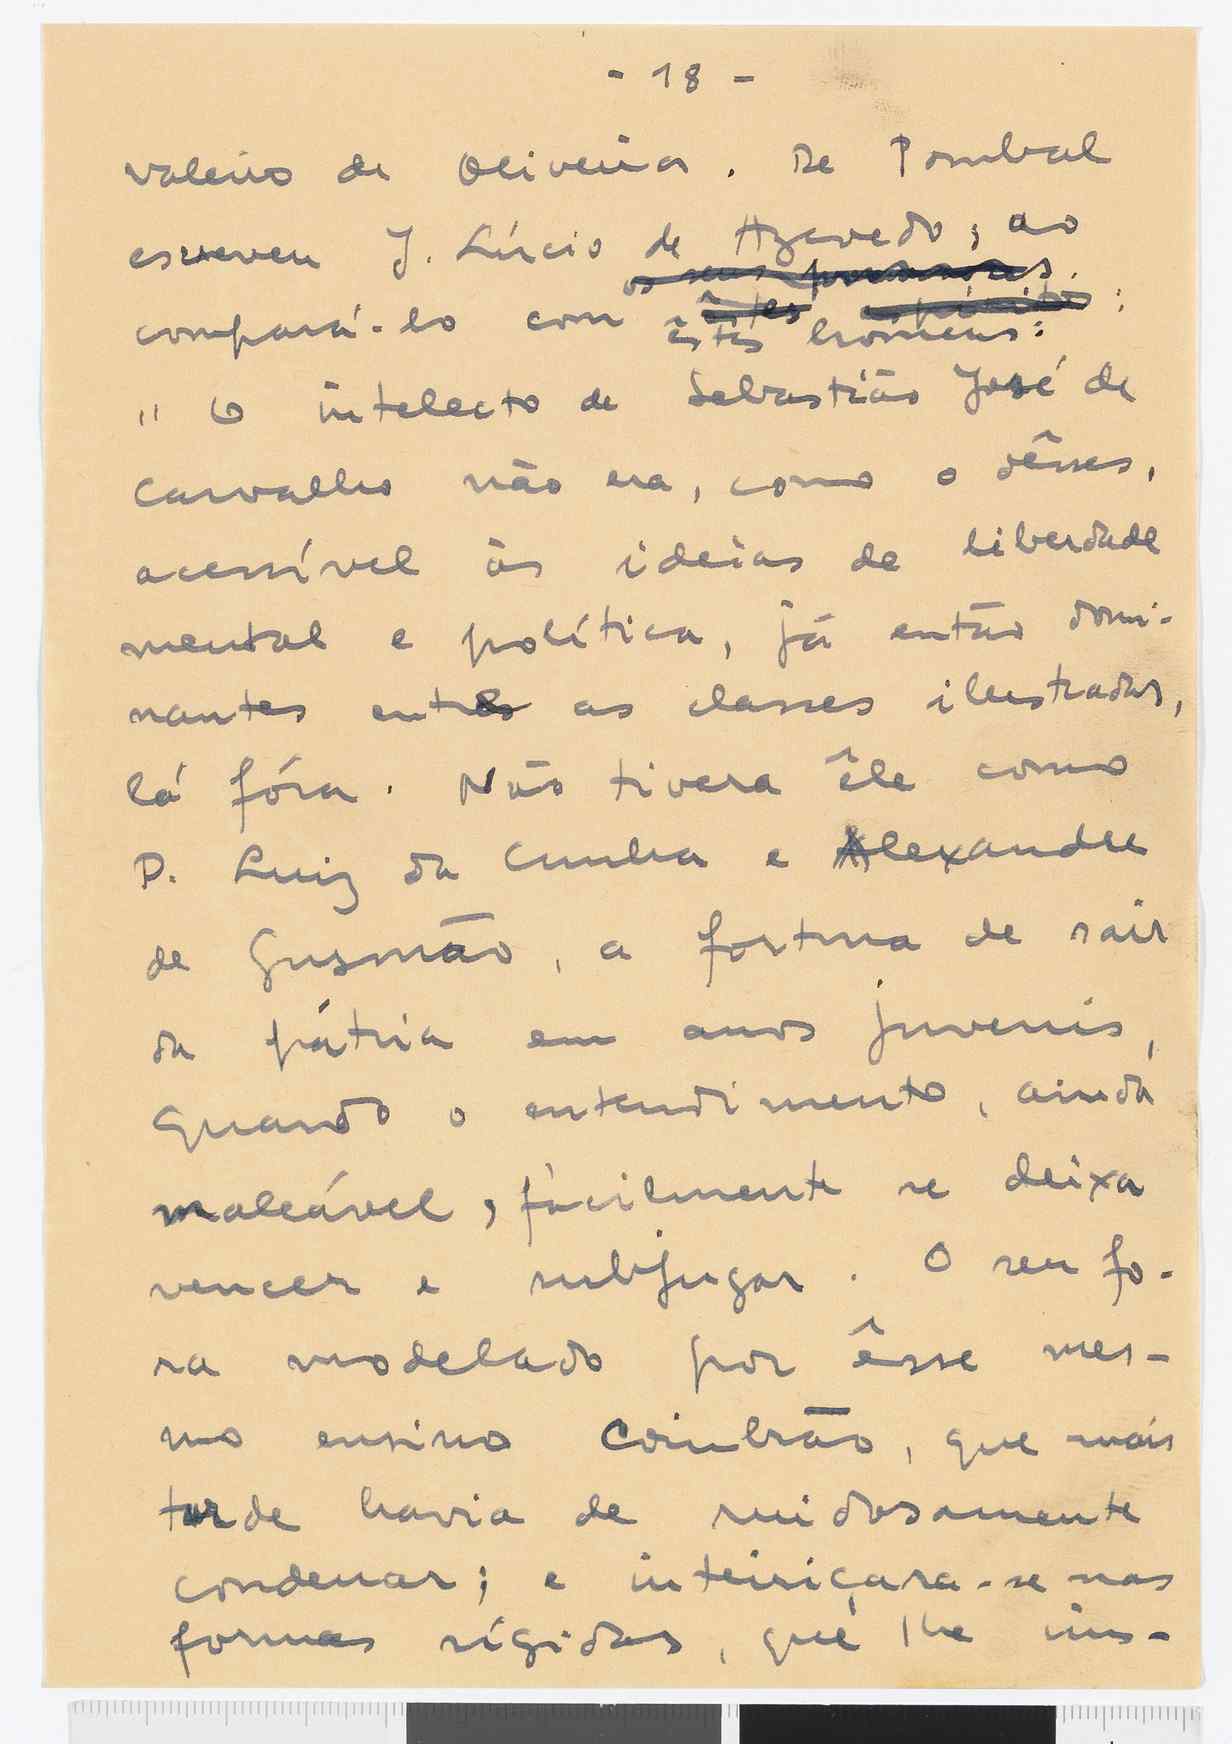 - 18 -
valeiro de Oliveira. De Pombal
escreveu J. Lúcio de Azevedo, ao
os seus
compará-lo com êstes
êstes homens:
" O intelecto de Sebastião José de
Carvalho não era, como o dêsses,
acessível às ideias de liberdade
mental e política, já então domi-
nantes entre as classes ilustradas,
lá fóra. Não tivera êle como
D. Luiz da Cunha e Alexandre
de Gusmão, a fortuna de sair
da pátria em anos juvenis,
quando o entendimento, ainda
maleável, fàcilmente se deixa
vencer e subjugar. O seu fo-
ra modelado por êsse mes-
mo ensino Coimbrão, que mais
tarde havia de ruidosamente
condenar; e inteiriçara-se nas
formas rígidas, que lhe im-